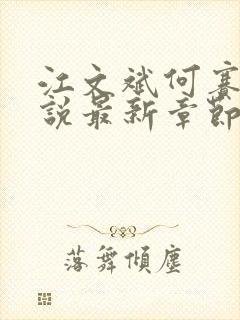 江文斌何赛
說最新章節
落舞傾塵